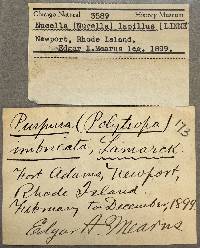 Chicago Natural 3589 History Museum
Nucella (Nucella) lapillus (LINNE
Newport, Rhode Island.
Edgar A. Mearns leg. 1899.
Purpura (Polytropa) 173
imbricata, Lamarck.
Fort Adams, Newport,
Rhode Island.
February to December, 1899
Edgar A. Mearns